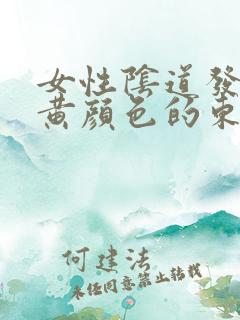 女性陰道發
黃顏色的東
何建法
未经同意禁止转载